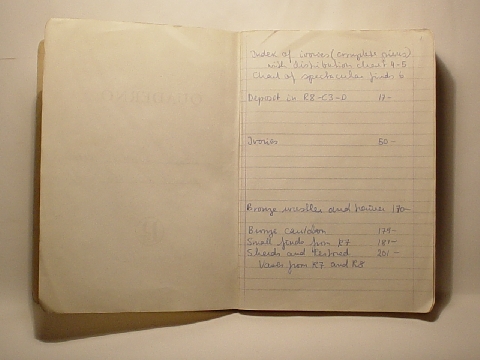 Index of ivories (complete pieces)
with distribution chart 4-5
Chart of spectacular finds 6
Deposit in R8-C3-D 17-
Ivories 50-
Bronze and 170-
Bronze cauldron 179-
Small finds from R7 187-
Sherds and restored 201-
Vases from R7 and R8